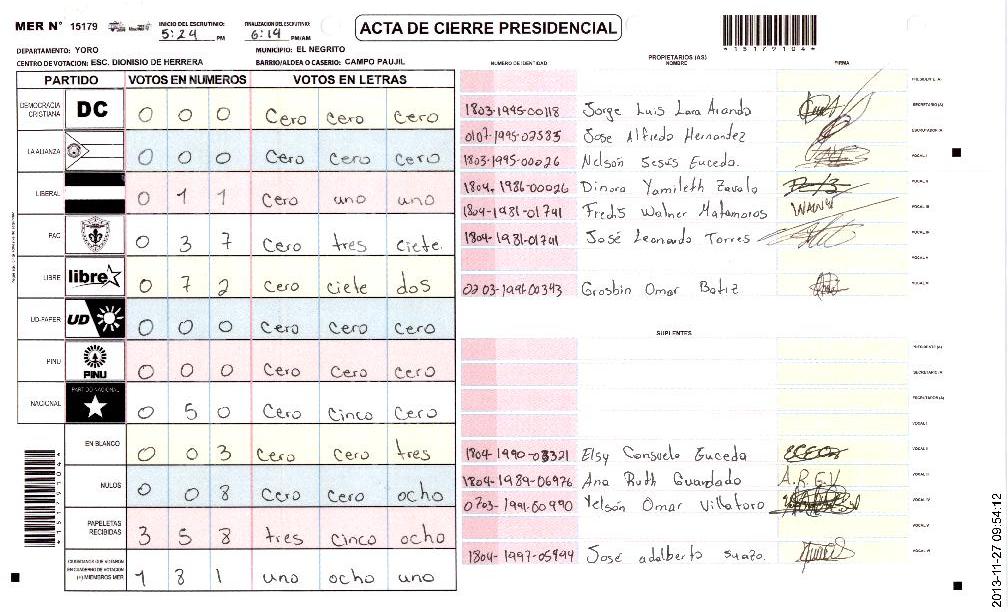 MER N° 15179 INICIO DEL ESCRUTINIO: 5:24 PM FINALIZACION DEL ESCRUTINIO: 6:14 PM/AM
ACTA DE CIERRE PRESIDENCIAL
*15179104*
DEPARTAMENTO: YORO MUNICIPIO: EL NEGRITO
CENTRO DE VOTACION: ESC. DIONISIO DE HERRERA BARRIO/ALDEA O CASERIO: CAMPO PAUJIL
PARTIDO VOTOS EN NUMEROS VOTOS EN LETRAS
DEMOCRACIA CRISTIANA DC 0 0 0 Cero cero cero
LA ALIANZA 0 0 0 Cero Cero Cero
LIBERAL 0 1 1 Cero uno uno
PAC 0 3 7 Cero tres ciete
LIBRE libre 0 7 2 Cero ciete dos
UD-FAPER UD 0 0 0 Cero Cero Cero
PINU PINU 0 0 0 Cero Cero Cero
NACIONAL PARTIDO NACIONAL 0 5 0 Cero Cinco Cero
EN BLANCO 0 0 3 Cero Cero tres
NULOS 0 0 8 Cero Cero ocho
PAPELETAS RECIBIDAS 3 5 8 tres cinco ocho
CIUDADANOS QUE VOTARON EN CUADERNO DE VOTACION (+) MIEMBROS MER 1 8 1 uno ocho uno
*15179104*
NUMERO DE IDENTIDAD PROPIETARIOS (AS) NOMBRE FIRMA
PRESIDENTE (A)
1803-1995-00118 Jorge Luis Lara Aranda SECRETARIO (A)
0107-1995-02583 Jose Alfredo Hernandez ESCRUTADOR (A)
1803-1995-00026 Nelson Jesús Euceda. VOCAL I
1804-1986-00026 Dinora Yamileth Zavala VOCAL II
1804-1981-01741 Fredis Walner Matamoros VOCAL III
1804-1981-01741 José Leonardo Torres VOCAL IV
VOCAL V
0203-1991-00343 Grosbin Omar Batiz VOCAL VI
SUPLENTES
PRESIDENTE (A)
SECRETARIO (A)
ESCRUTADOR (A)
VOCAL I
1804-1990-03321 Elsy Consuelo Euceda VOCAL II
1804-1989-06976 Ana Ruth Guardado A.R.G.V VOCAL III
0703-1991-00990 Yelson Omar Villatoro VOCAL IV
VOCAL V
1804-1997-05944 José adalberto suazo. VOCAL VI
2013-11-27 09:54:12